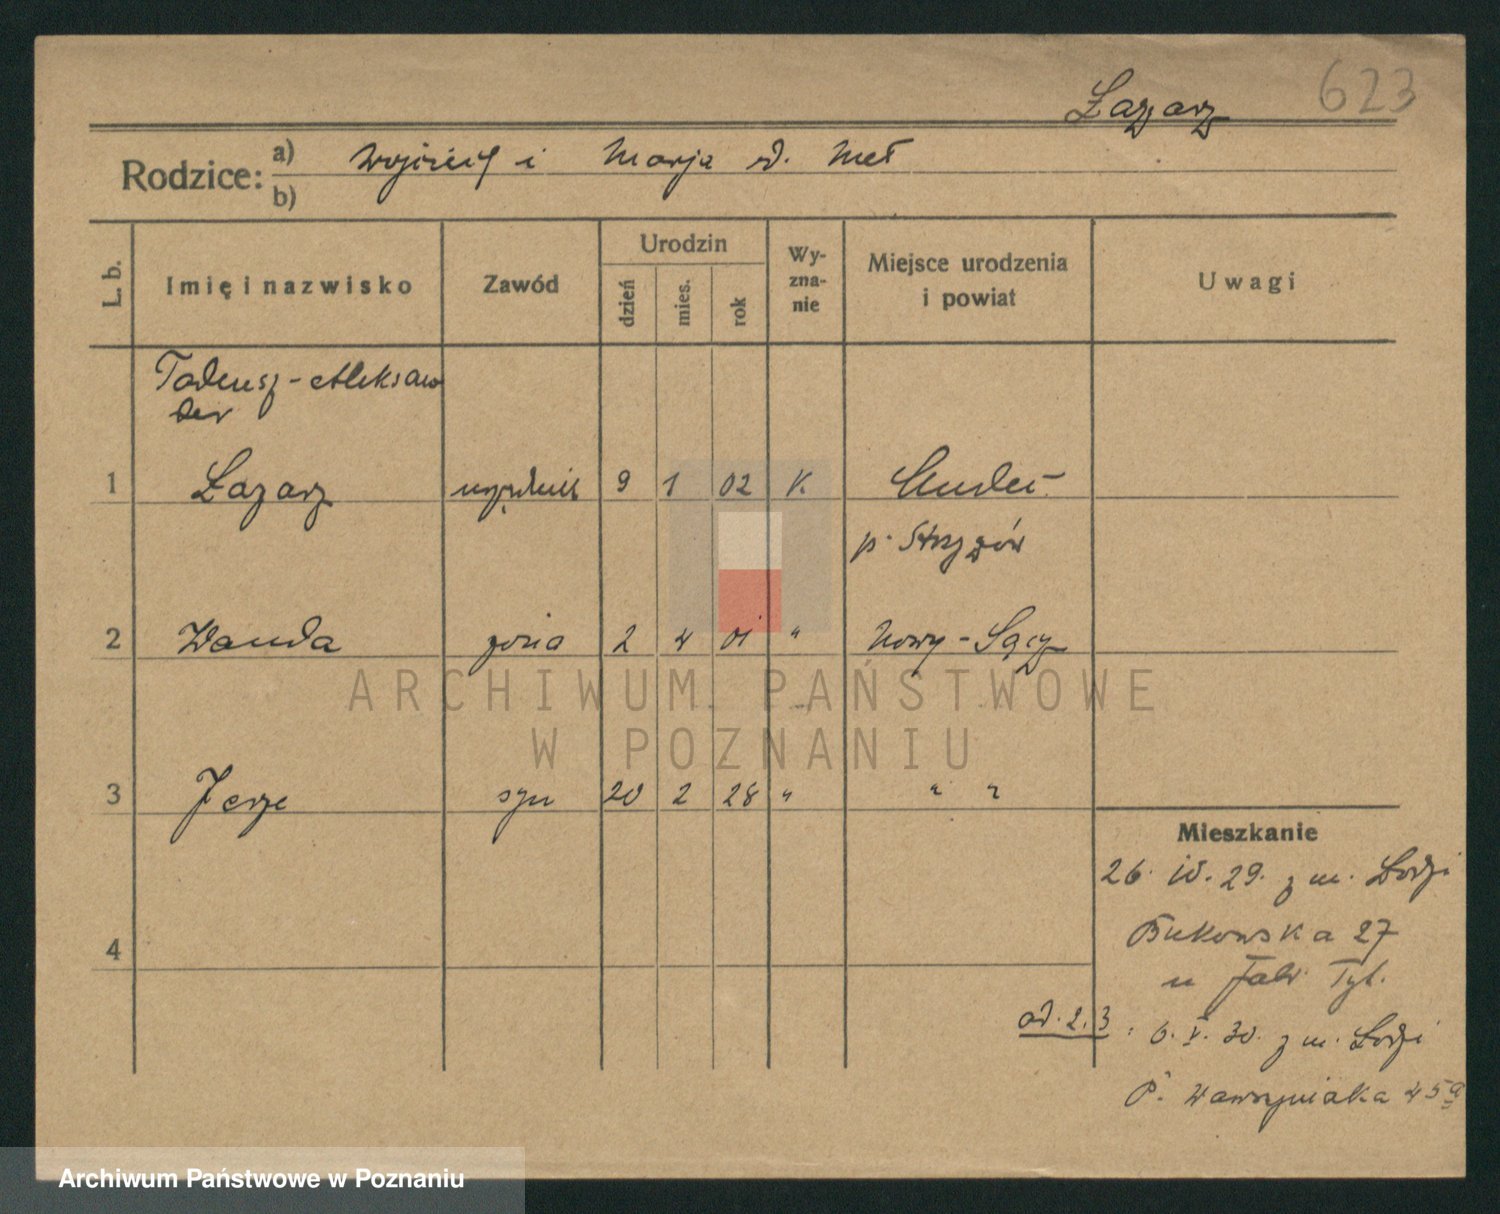 623
Łazarz
Rodzice: a) Wojciech i Marja d. Meł
b)
L. b. Imię i nazwisko Zawód Urodzin dzień mies. rok Wy-zna-nie Miejsce urodzenia i powiat Uwagi
Tadeusz-Aleksan
der
1 Łazarz urzędnik 9 1 02 K.
p. Strzyżów
2 Wanda żona 2 4 01 " Nowy-Sącz
3 Jerze syn 20 2 28 " " "
Mieszkanie
26. IV. 29. z m. Łodzi
Bukowska 27
4
u Fabr. Tyt.
od. 2. 3 : 6. V. 30. z m. Łodzi
P. Wawrzyniaka 45a
ARCHIWUM PAŃSTWOWE
W POZNANIU
Archiwum Państwowe w Poznaniu